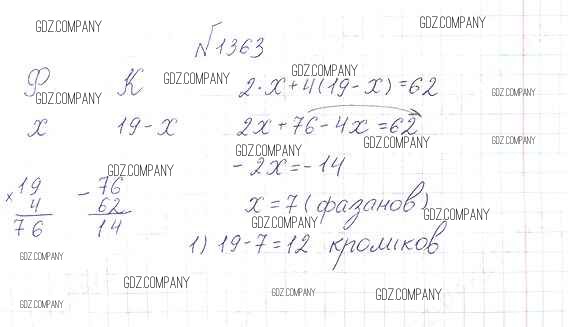 GDZ.COMPANY GDZ.COMPANY
№1363
Ф К GDZ.COMPANY GDZ.COMPANY 2·x+4(19-x)=62
GDZ.COMPANY GDZ.COMPANY
x 19-x 2x+76-4x=62
GDZ.COMPANY GDZ.COMPANY GDZ.COMPANY
GDZ.COMPANY -2x=-14
×19 -76
4 62 x=7 (фазанов)
76 14 GDZ.COMPANY GDZ.COMPANY
1) 19-7=12 кроликов
GDZ.COMPANY
GDZ.COMPANY GDZ.COMPANY GDZ.COMPANY
GDZ.COMPANY